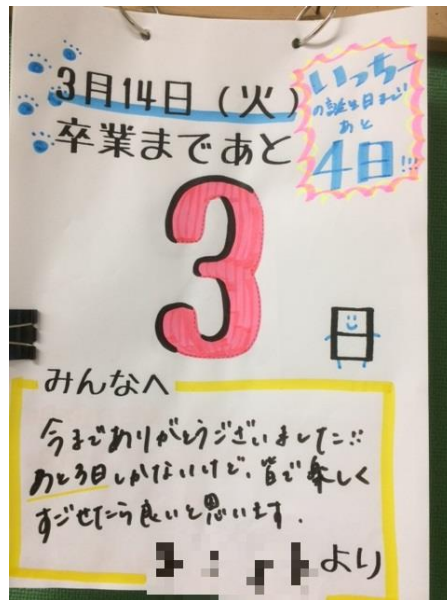 3月14日（火）
卒業まであと
いっちー
の誕生日まで
あと
4日!!!
3
日
みんなへ
今までありがとうございました!!
あと3日しかないけど、皆で楽しく
すごせたら良いと思います.
より